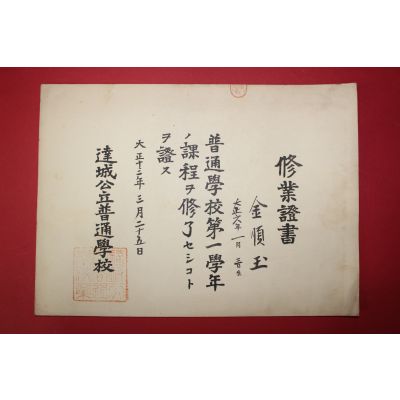 修業證書
金順玉
大正六年一月 日生
普通學校第一學年
ノ課程ヲ修了セシコト
ヲ證ス
大正十二年三月二十五日
達城公立普通學校